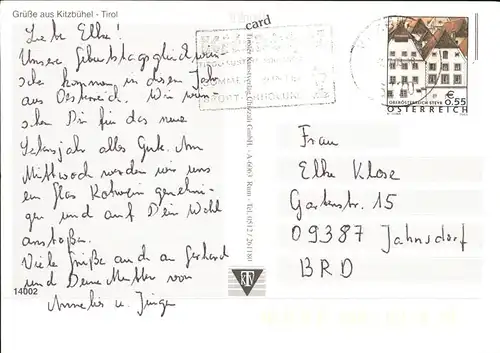 Grüße aus Kitzbühel - Tirol
card
Liebe Elke!
Unsere Geburtstagsglückwün-
sche kommen in diesem Jahr
aus Oesterreich. Wir wün-
schen Dir für das neue
Lebensjahr alles Gute. Am
Mittwoch werden wir uns
ein Glas Rotwein genehmi-
gen und auf Dein Wohl
anstoßen.
Viele Grüße auch an Gerhard
und Deine Mutter von
Annelies u. Jürgen
14002
Tiroler Kunstverlag Chizzali GmbH., A-6063 Rum
OBERÖSTERREICH STEYR
€ 0.55
ÖSTERREICH
Frau
Elke Klose
Gartenstr. 15
09387 Jahnsdorf
BRD